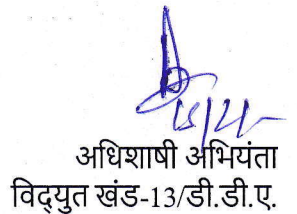 अधिशाषी अभियंता
विद्युत खंड-13/डी.डी.ए.